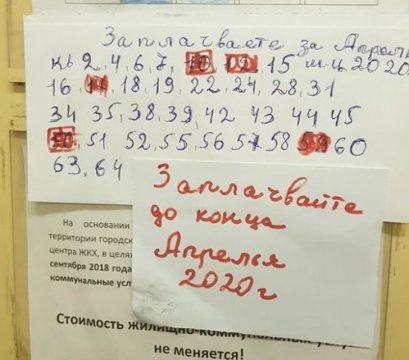 Заплачваете за Апрель
кв 2, 4, 6, 7, 10 12, 15 м-ц 2020
16, 17, 18, 19, 22, 24, 28, 31
34 35, 38, 39, 42 43 44 45
50, 51 52, 55, 56 57 58 59 60
63, 64
Заплачвайте
до конца
Апрелся
2020г
На основании
территории городск
центра ЖКХ, в целях
сентября 2018 года
коммунальные усл
Стоимость жилищно-коммунальных
не меняется!